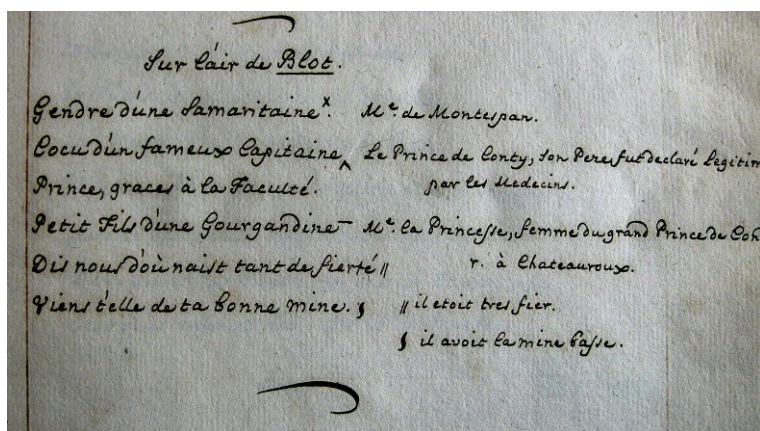 Sur l'air de Blot.
Gendre d'une Samaritaine x. Me. de Montespan.
Cocu d'un fameux Capitaine ^ Le Prince de Conty, son Pere fut declaré Legitim
Prince, graces à la Faculté. par les Medecins.
Petit Fils d'une Gourgandine – Me. la Princesse, femme du grand Prince de Con
Dis nous d'où naist tant de fierté // r. à Chateauroux.
Viens t'elle de ta bonne mine. // il etoit tres fier.
il avoit la mine basse.